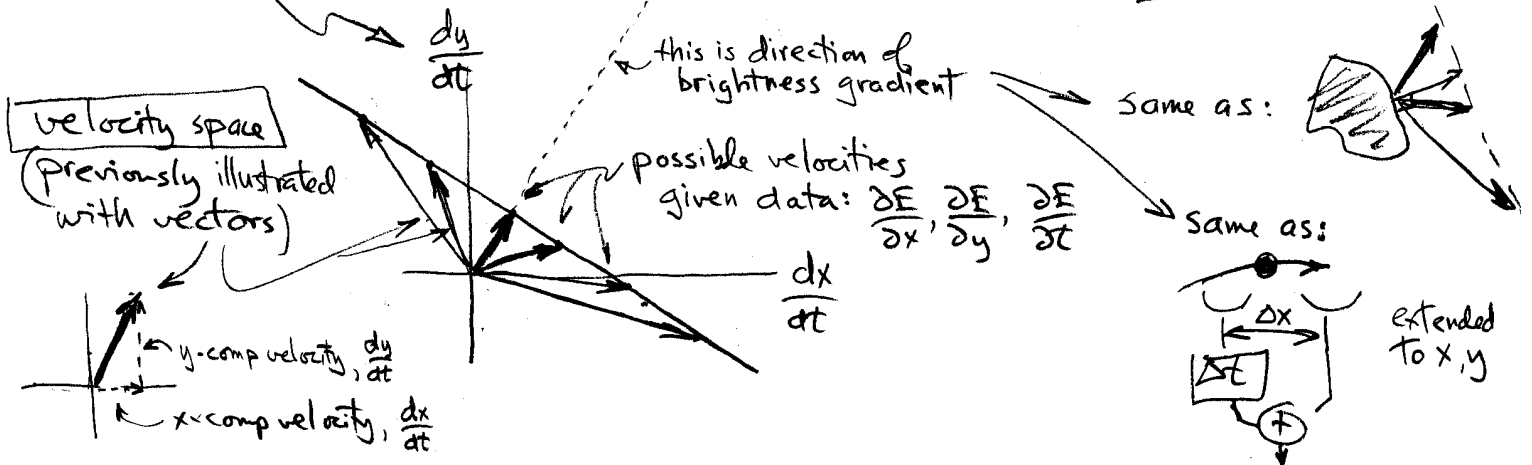 dy
dt
this is direction of
brightness gradient
same as:
velocity space
(previously illustrated
with vectors)
possible velocities
given data: ∂E/∂x, ∂E/∂y, ∂E/∂t
same as:
dx
dt
Δx
extended
to x, y
Δt
+
y-comp velocity, dy/dt
x-comp velocity, dx/dt